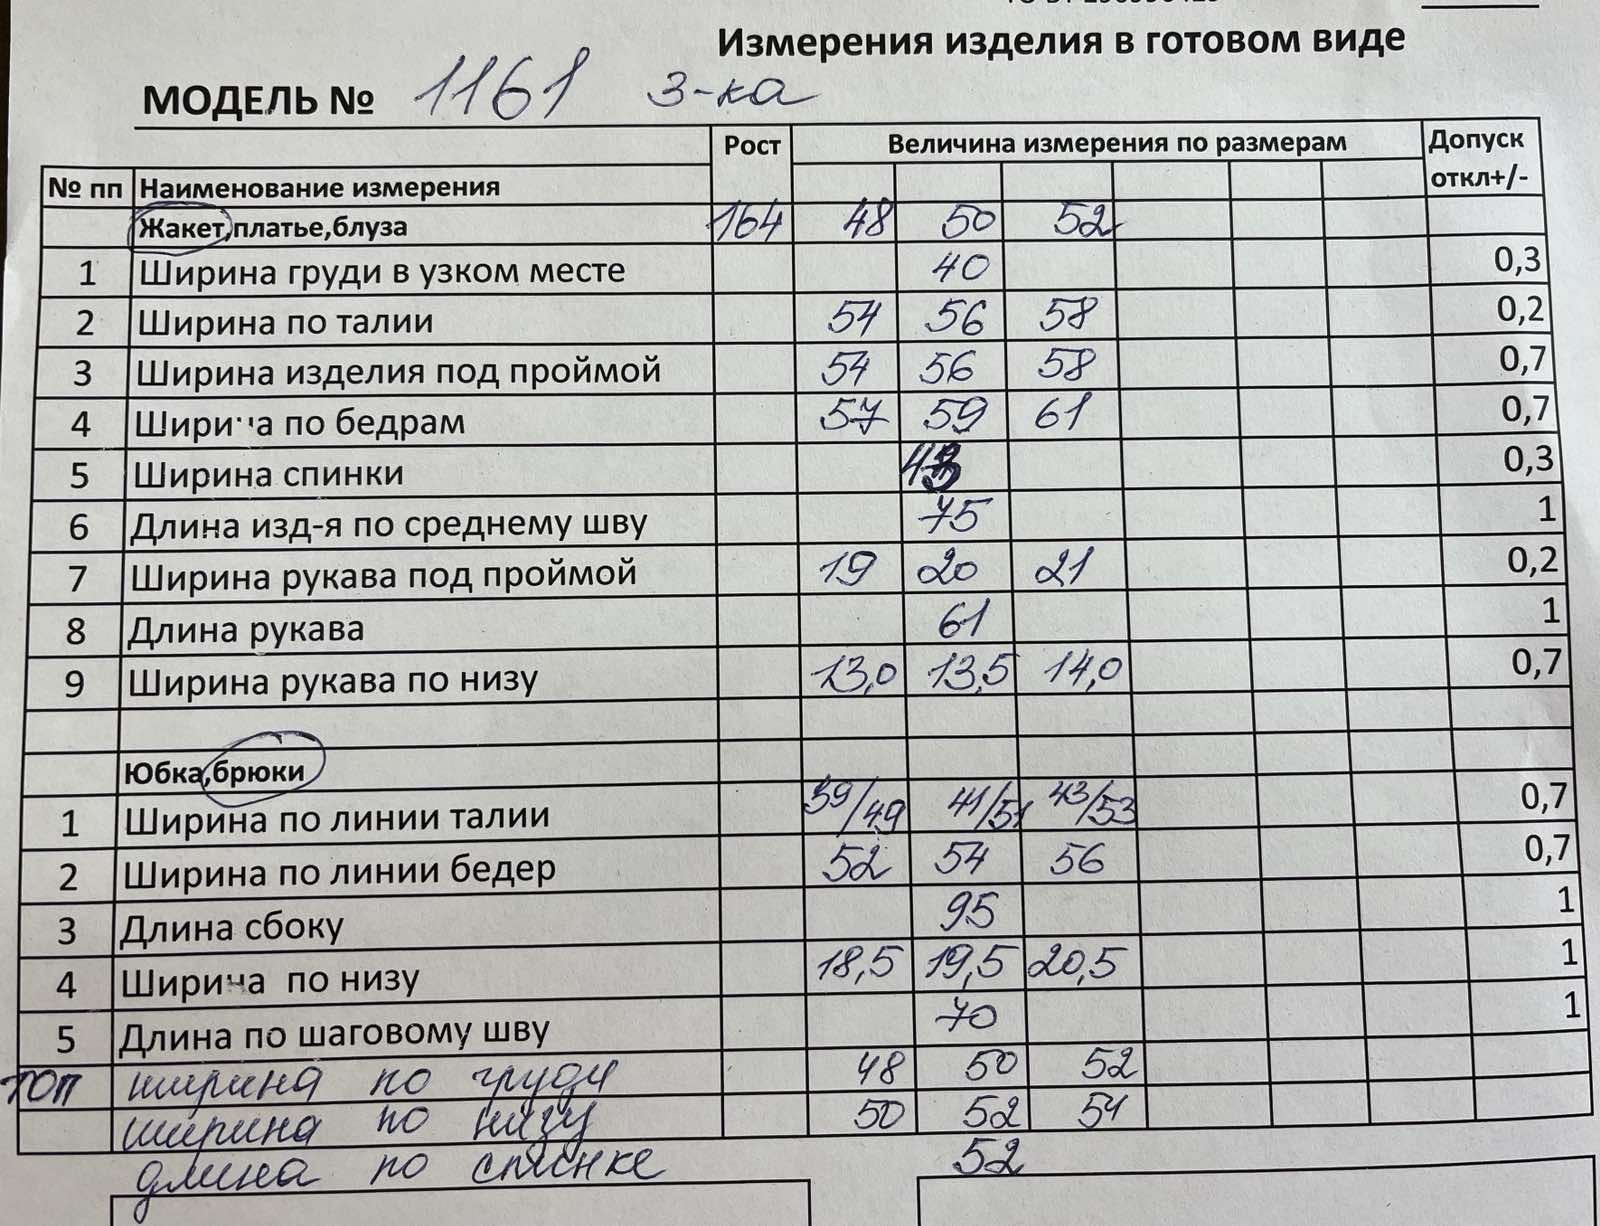 Измерения изделия в готовом виде
МОДЕЛЬ № 1161 3-ка
№ пп Наименование измерения Рост Величина измерения по размерам Допуск откл+/-
Жакет,платье,блуза 164 48 50 52
1 Ширина груди в узком месте 40 0,3
2 Ширина по талии 54 56 58 0,2
3 Ширина изделия под проймой 54 56 58 0,7
4 Ширина по бедрам 57 59 61 0,7
5 Ширина спинки 0,3
6 Длина изд-я по среднему шву 75 1
7 Ширина рукава под проймой 19 20 21 0,2
8 Длина рукава 61 1
9 Ширина рукава по низу 13,0 13,5 14,0 0,7
Юбка,брюки
1 Ширина по линии талии 39/49 41/51 43/53 0,7
2 Ширина по линии бедер 52 54 56 0,7
3 Длина сбоку 95 1
4 Ширина по низу 18,5 19,5 20,5 1
5 Длина по шаговому шву 70 1
топ ширина по груди 48 50 52
ширина по низу 50 52 54
длина по спинке 52